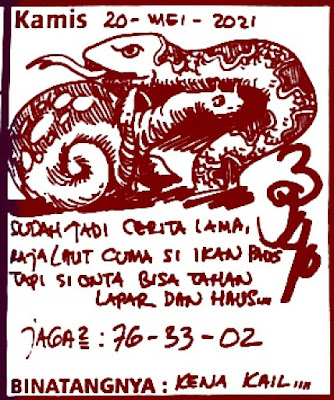 Kamis 20-MEI-2021
SUDAH JADI CERITA LAMA,
RAJA LAUT CUMA SI IKAN PAUS
TAPI SI ONTA BISA TAHAN
LAPAR DAN HAUS...
JAGA2 : 76-33-02
BINATANGNYA : KENA KAIL...